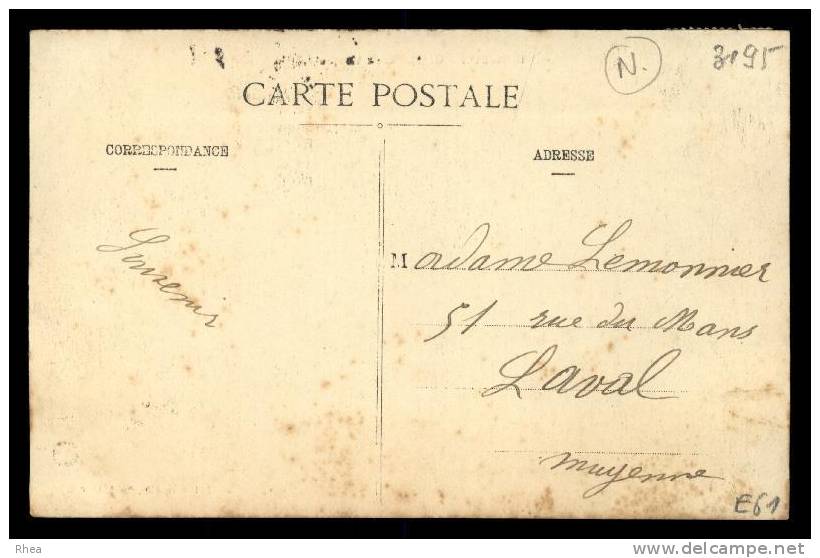 N.
3195
CARTE POSTALE
CORRESPONDANCE
ADRESSE
Souvenir
Madame Lemonnier
51 rue du Mans
Laval
Mayenne
E61
Rhea
http://www.delcampe.net